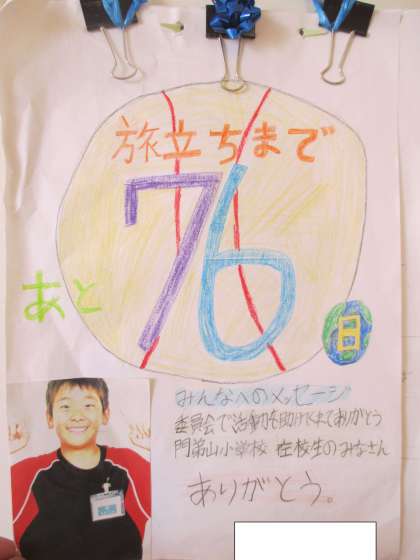 旅立ちまで
あと
76
日
みんなへのメッセージ
委員会で活動を助けてくれてありがとう
門第山小学校 在校生のみなさん
ありがとう。